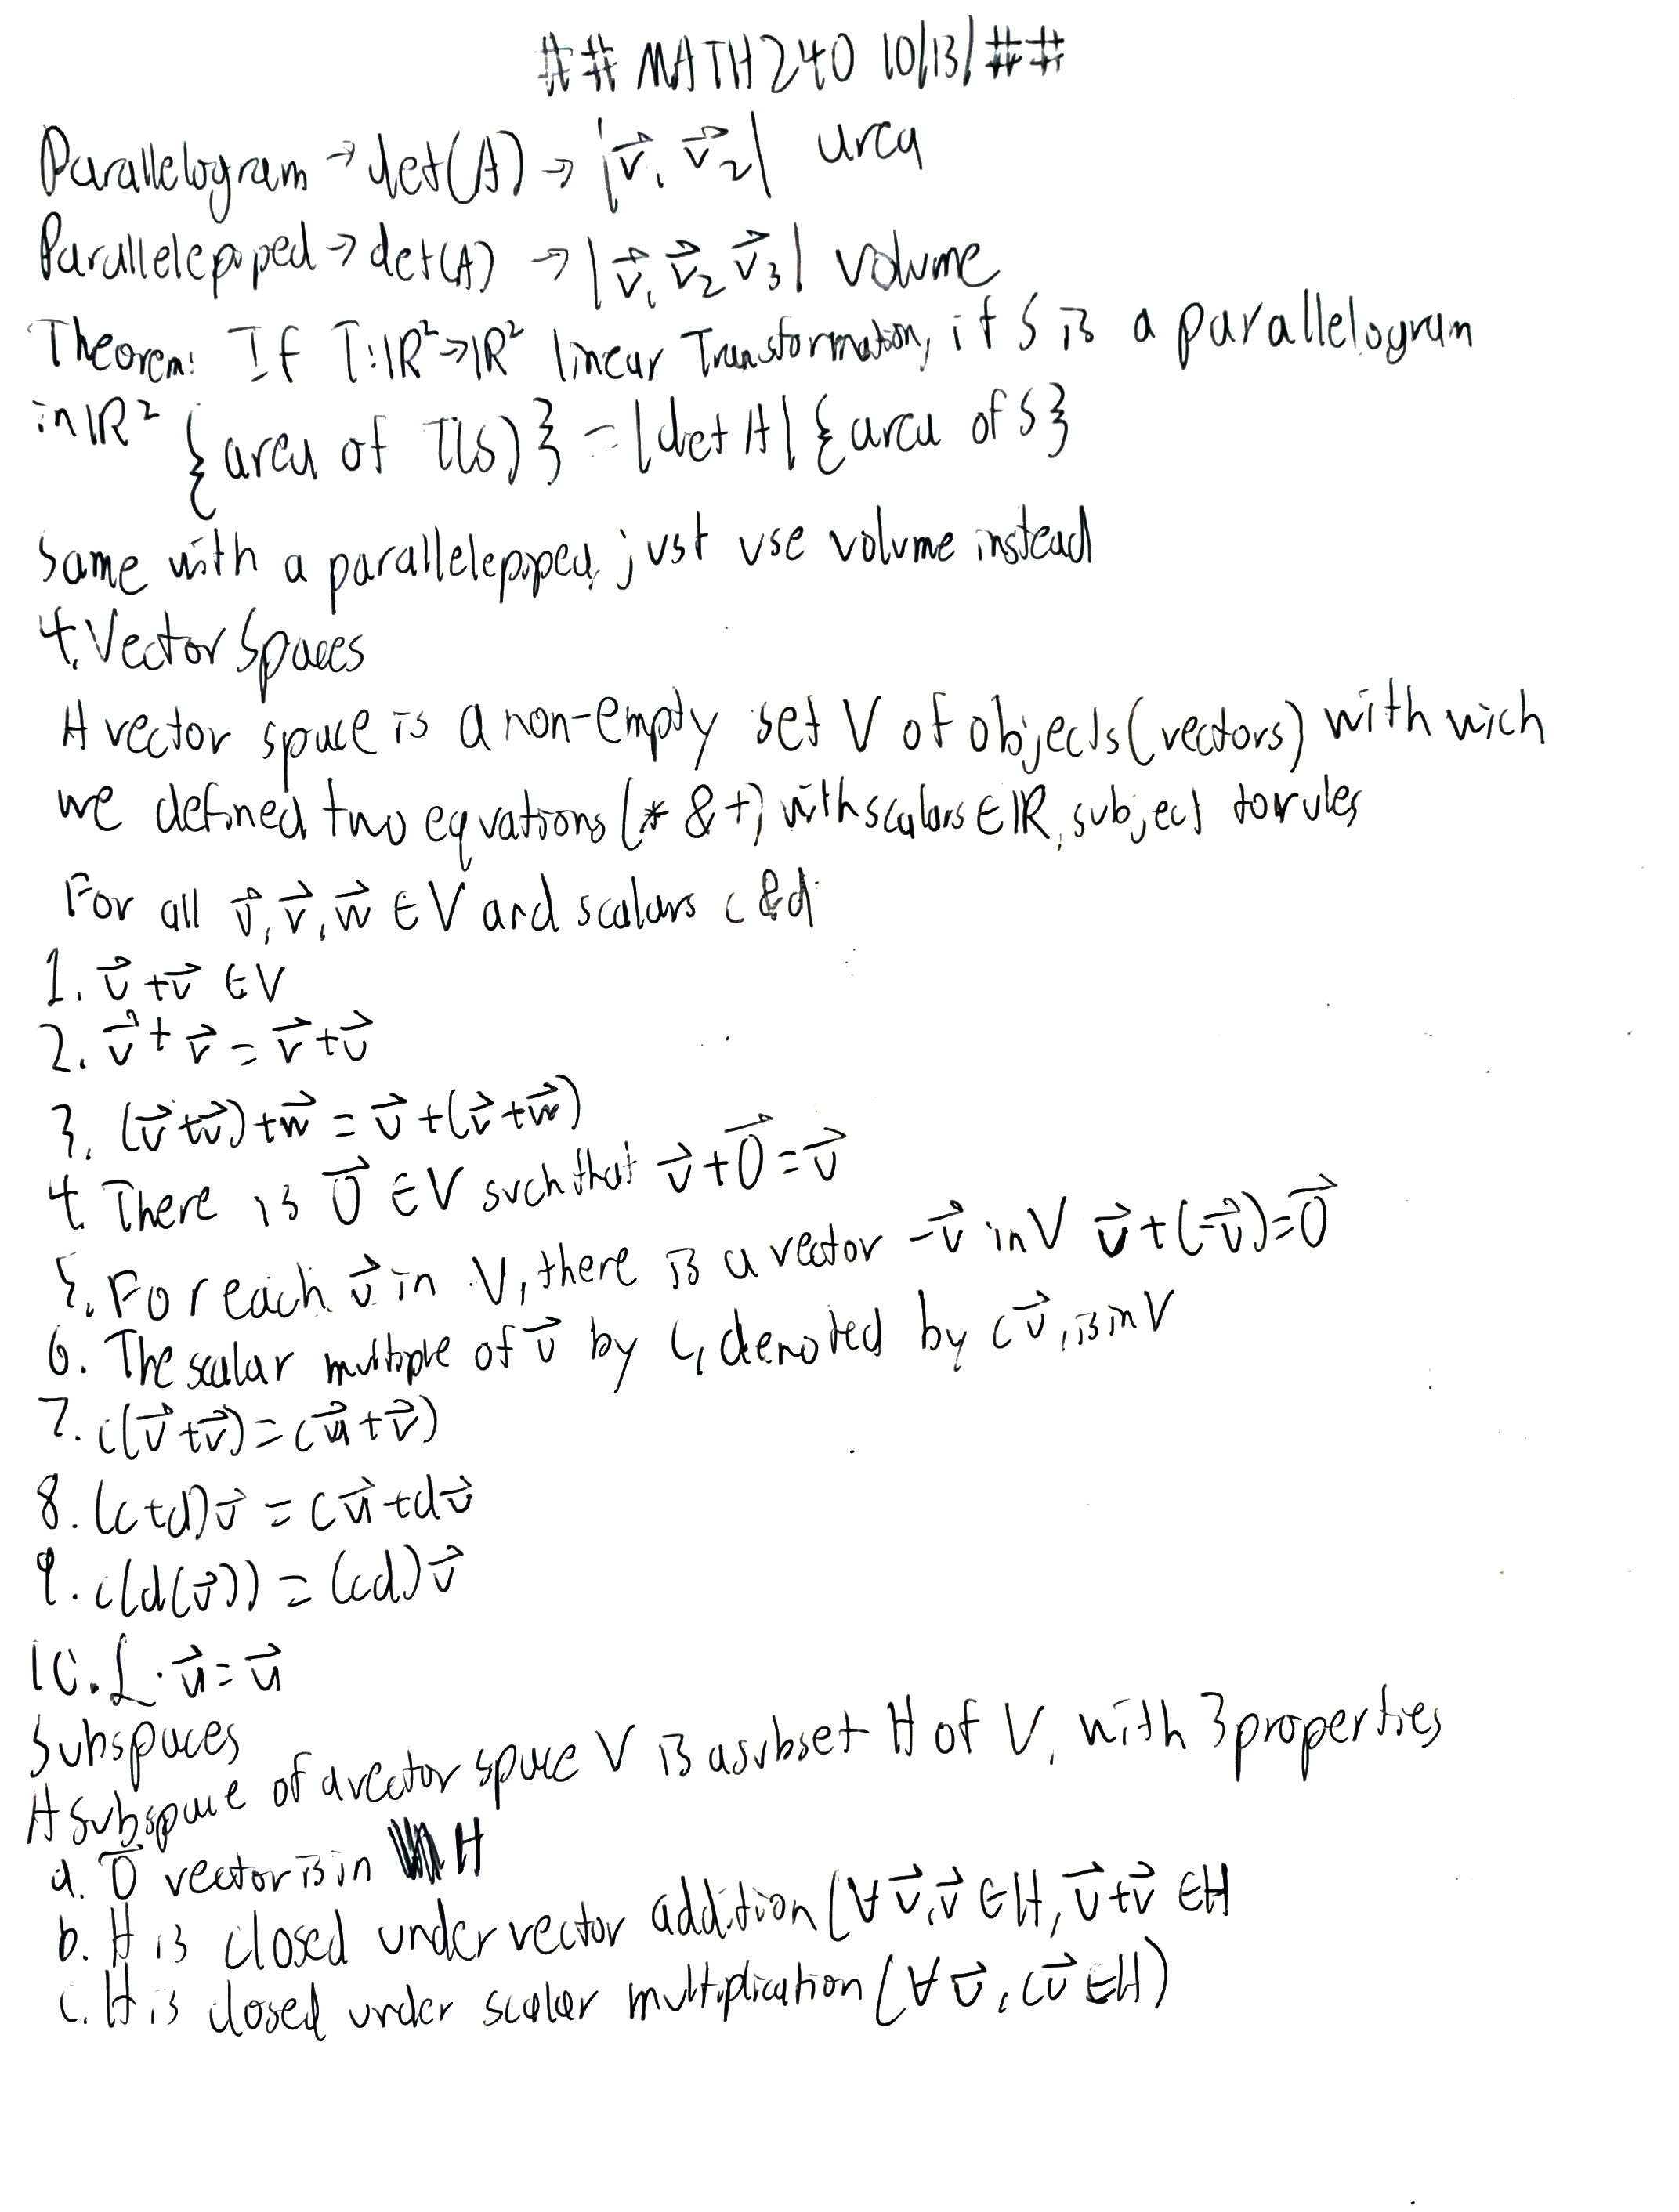 ## MATH240 10/13/##
Parallelogram → det(A) → |v⃗₁ v⃗₂| area
Parallelepiped → det(A) → |v⃗₁ v⃗₂ v⃗₃| volume
Theorem: If T:ℝ²→ℝ² linear Transformation, if S is a parallelogram
in ℝ² {area of T(S)} = |det A| {area of S}
Same with a parallelepiped, just use volume instead
4. Vector Spaces
A vector space is a non-empty set V of objects (vectors) with wich
we defined two equations (* & +) with scalars ∈ ℝ, subject to rules
For all u⃗, v⃗, w⃗ ∈ V and scalars c & d
1. u⃗ + v⃗ ∈ V
2. u⃗ + v⃗ = v⃗ + u⃗
3. (u⃗ + v⃗) + w⃗ = u⃗ + (v⃗ + w⃗)
4. There is 0⃗ ∈ V such that u⃗ + 0⃗ = u⃗
5. For each u⃗ in V, there is a vector -u⃗ in V u⃗ + (-u⃗) = 0⃗
6. The scalar multiple of u⃗ by c, denoted by cu⃗, is in V
7. c(u⃗ + v⃗) = c(u⃗ + v⃗)
8. (c+d)u⃗ = cu⃗ + du⃗
9. c(d(u⃗)) = (cd)u⃗
10. 1 · u⃗ = u⃗
Subspaces
A subspace of a vector space V is a subset H of V, with 3 properties
a. 0⃗ vector is in H
b. H is closed under vector addition (∀ u⃗, v⃗ ∈ H, u⃗ + v⃗ ∈ H
c. H is closed under scalar multiplication (∀ u⃗, cu⃗ ∈ H)